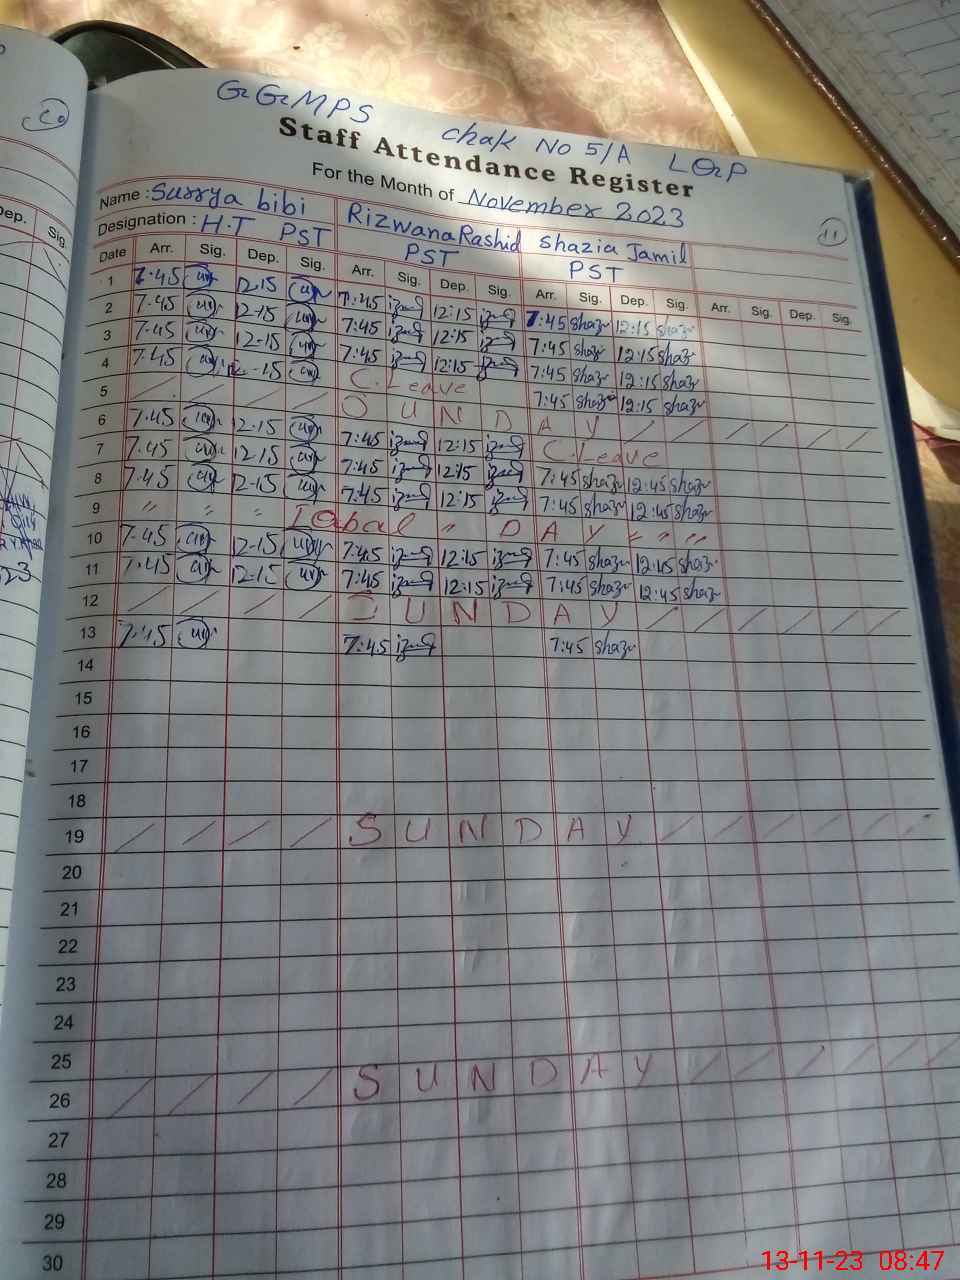 GGMPS chak No 5/A LQP
Staff Attendance Register
For the Month of November 2023
11
Name : Surrya bibi Rizwana Rashid Shazia Jamil
Designation : H.T PST PST PST
Date Arr. Sig. Dep. Sig. Arr. Sig. Dep. Sig. Arr. Sig. Dep. Sig. Arr. Sig. Dep. Sig.
1 7.45 12-15 7:45 12:15 7:45 shaz 12:15 shaz
2 7.45 12-15 7:45 12:15 7:45 shaz 12:15 shaz
3 7.45 12-15 7:45 12:15 7:45 shaz 12:15 shaz
4 7.45 12-15 C.Leave 7:45 shaz 12:15 shaz
5 S U N D A Y
6 7.45 12-15 7:45 12:15 C.Leave
7 7.45 12-15 7:45 12:15 7:45 shaz 12:45 shaz
8 7.45 12-15 7:45 12:15 7:45 shaz 12:45 shaz
9 " " " Iqbal " D A Y " " "
10 7.45 12-15 7:45 12:15 7:45 shaz 12:45 shaz
11 7.45 12-15 7:45 12:15 7:45 shaz 12:45 shaz
12 S U N D A Y
13 7.45 7:45 7:45 shaz
14
15
16
17
18
19 S U N D A Y
20
21
22
23
24
25
26 S U N D A Y
27
28
29
30
Dep. Sig.
13-11-23 08:47